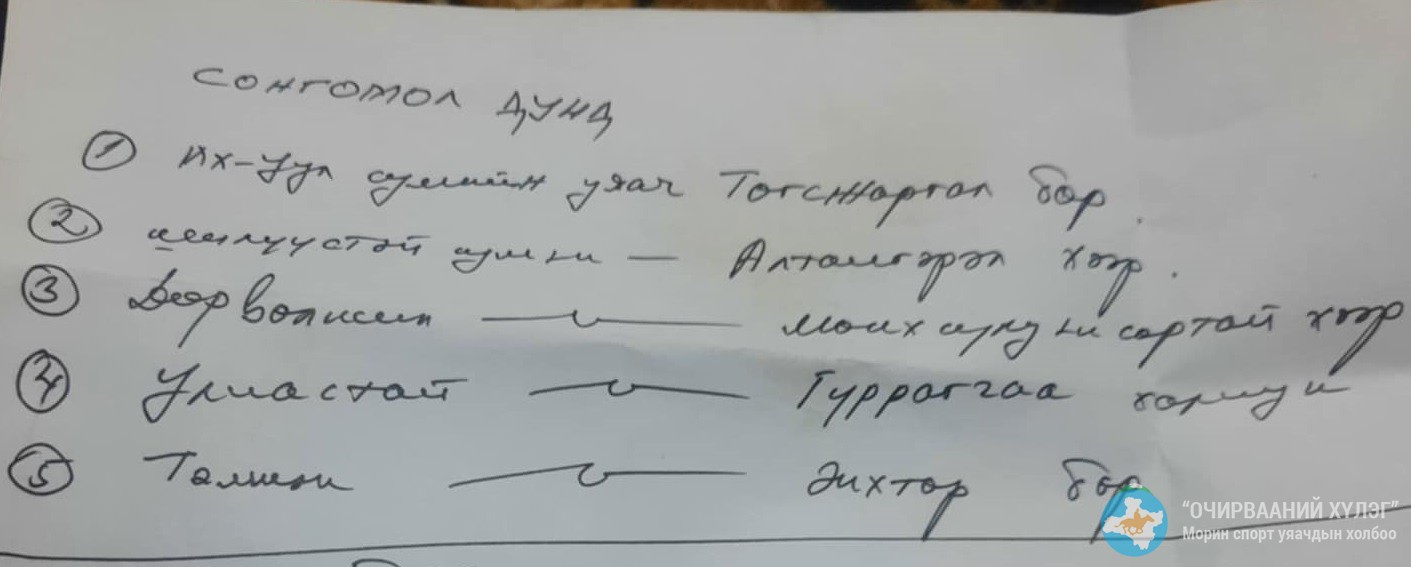 сонгомол дунд
① Их-Уул сумын уяач Тогсжаргал бор.
② Цэцэн — Алтангэрэл хээр.
③ Дөрвөлжин — сартай хээр
④ Улиастай — Туррагчаа халиун
⑤ Тэлмэн — Энхтөр бор
"ОЧИРВААНИЙ ХҮЛЭГ"
Морин спорт уяачдын холбоо